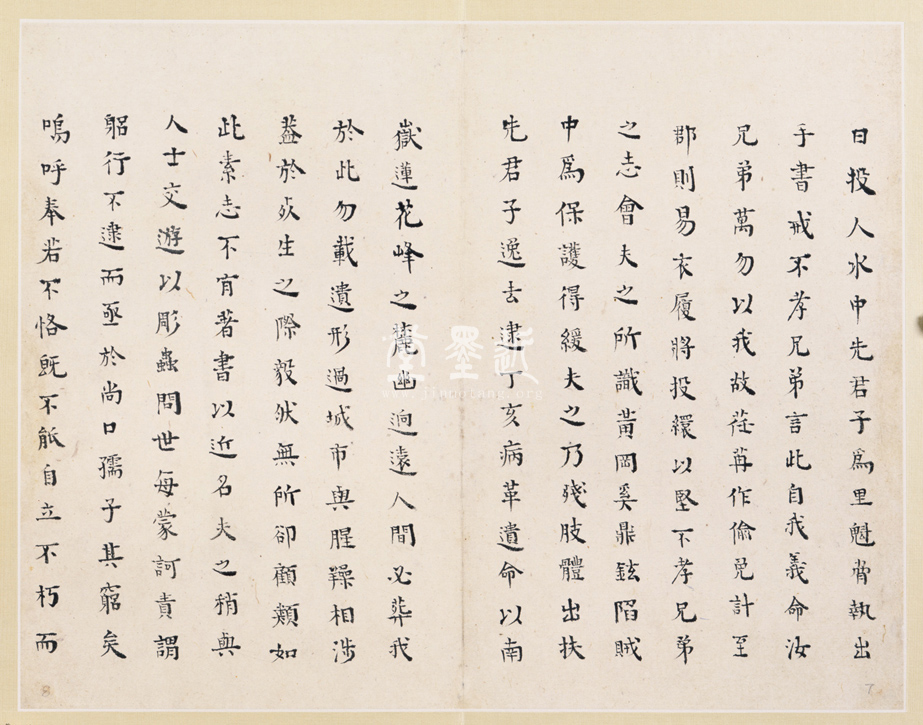 日投人水中先君子爲里魁脅執出
手書戒不孝兄弟言此自我義命汝
兄弟萬勿以我故荏苒作偷免計至
郡則易衣履將投繯以堅不孝兄弟
之志會夫之所識黃岡奚鼎鉉陷賊
中爲保護得緩夫之乃殘肢體出扶
先君子逸去逮丁亥病革遺命以南
7
嶽蓮花峰之麓幽迥遠人間必葬我
於此勿載遺形過城市與腥臊相涉
蓋於死生之際毅然無所卻顧類如
此素志不肯著書以近名夫之稍與
人士交遊以彫蟲問世每蒙訶責謂
躬行不逮而亟於尚口孺子其窮矣
嗚呼奉若不恪既不能自立不朽而
8